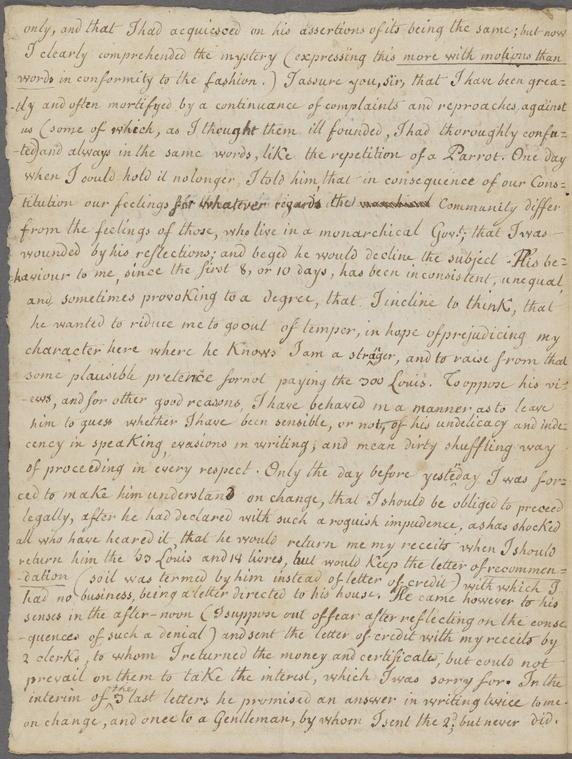 only, and that I had acquiesced on his assertions of its being the same; but now
I clearly comprehended the mystery (expressing this more with motions than
words in conformity to the fashion.) I assure you, sir, that I have been grea-
-tly and often mortifyed by a continuance of complaints and reproaches, against
us (some of which, as I thought them ill founded, I had thoroughly confu-
-ted) and always in the same words, like the repetition of a Parrot. One day
when I could hold it no longer, I told him, that in consequence of our Cons-
titution our feelings for whatever regards the Community differ
from the feelings of those, who live in a monarchical Govt.; that I was
wounded by his reflections; and beged he would decline the subject. His be-
haviour to me, since the first 8, or 10 days, has been inconsistent, unequal,
and sometimes provoking to a degree, that I incline to think, that
he wanted to riduce me to go out of temper, in hope of prejudicing my
character here where he Knows I am a stranger, and to raise from that
some plausible pretence for not paying the 300 Louis. To oppose his vi-
-ews, and for other good reasons, I have behaved in a manner, as to leave
him to guess whether I have been sensible, or not, of his undelicacy and inde-
cency in speaking, evasions in writing, and mean dirty shuffling way
of proceeding in every respect. Only the day before yesteday I was for-
ced to make him understand on change, that I should be obliged to proceed
legally, after he had declared with such a roguish impudence, as has shocked
all who have heared it, that he would return me my receits when I should
return him the 33 Louis and 18 livres, but would keep the letter of recommen-
-dation (so il was termed by him instead of letter of credit) with which I
had no business, being a letter directed to his house. He came however to his
senses in the after-noon (I suppose out of fear after reflecting on the conse-
-quences of such a denial) and sent the letter of credit with my receits by
2 clerks, to whom I returned the money and certificate, but could not
prevail on them to take the interest, which I was sorry for. In the
interim of the 3 last letters he promised an answer in writing twice to me
on change, and once to a Gentleman, by whom I sent the 2d, but never did.